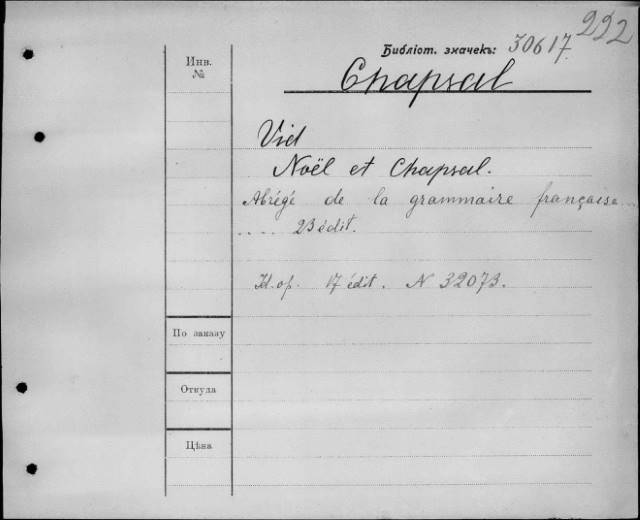 222
Библіот. значекъ: 30617.
Инв.
№
Chapsal
Vid
Noël et Chapsal.
Abrégé de la grammaire française ...
.... 23 édit.
Id. op. 17 édit. N 32073.
По заказу
Откуда
Цѣна